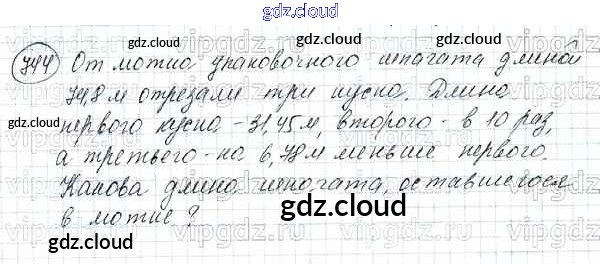 gdz.cloud
744 От мотка упаковочного шпагата длиной
74,8 м отрезали три куска. Длина
первого куска - 31,45 м, второго - в 10 раз,
а третьего - на 6,78 м меньше первого.
Какова длина шпагата, оставшегося
в мотке?
gdz.cloud